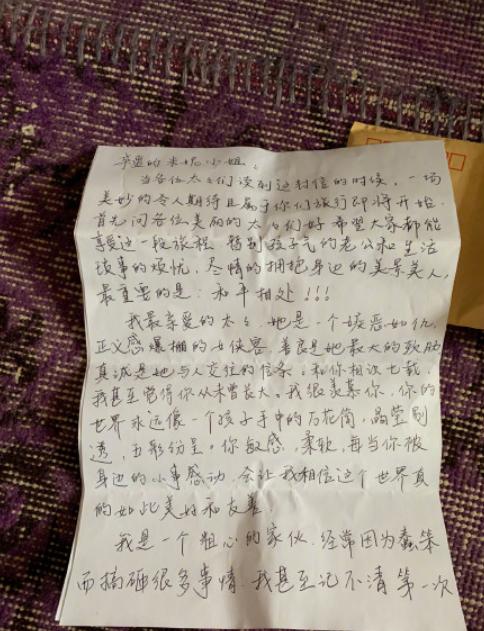 亲爱的米妮小姐：
当各位太太们读到这封信的时候，一场
美妙的令人期待且属于你们旅行即将开始.
首先问各位美丽的太太们好 希望大家都能
享受这一段旅程 暂别孩子气的老公和生活
琐事的烦忧，尽情的拥抱身边的美景美人,
最重要的是：和平相处!!!
我最亲爱的太太，她是一个嫉恶如仇,
正义感爆棚的女侠客，善良是她最大的软肋
真诚是她与人交往的信条，和你相识七载,
我甚至觉得你从未曾长大。我很羡慕你，你的
世界永远像一个孩子手中的万花筒，晶莹剔
透，五彩纷呈。你敏感，柔软，每当你被
身边的小事感动，会让我相信这个世界真
的如此美好和友善.
我是一个粗心的家伙，经常因为蠢笨
而搞砸很多事情，我甚至记不清第一次